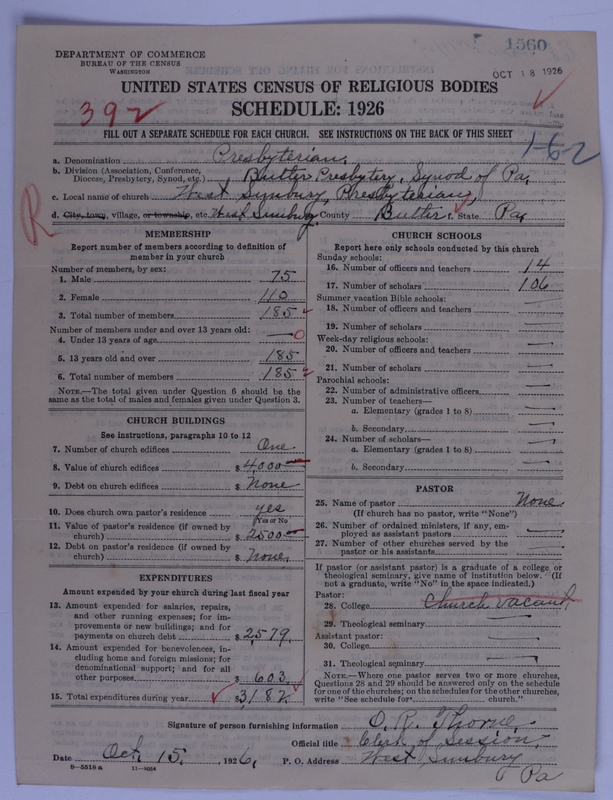 1560
DEPARTMENT OF COMMERCE
BUREAU OF THE CENSUS
WASHINGTON
OCT 18 1926
UNITED STATES CENSUS OF RELIGIOUS BODIES
SCHEDULE: 1926
392
FILL OUT A SEPARATE SCHEDULE FOR EACH CHURCH. SEE INSTRUCTIONS ON THE BACK OF THIS SHEET
1-62
a. Denomination Presbyterian
b. Division (Association, Conference, Diocese, Presbytery, Synod, etc.) Butler Presbytery, Synod of Pa.
c. Local name of church West Sunbury, Presbyterian,
R
d. City, town, village, or township, etc. West Sunbury County Butler f. State Pa,
MEMBERSHIP
Report number of members according to definition of
member in your church
Number of members, by sex:
1. Male 75
2. Female 110
3. Total number of members 185
Number of members under and over 13 years old:
4. Under 13 years of age 0
5. 13 years old and over 185
6. Total number of members 185
NOTE.—The total given under Question 6 should be
same as the total of males and females given under Question 3.
CHURCH BUILDINGS
See instructions, paragraphs 10 to 12
7. Number of church edifices One
8. Value of church edifices $ 4000
9. Debt on church edifices $ None
10. Does church own pastor's residence? yes
(Yes or No)
11. Value of pastor's residence (if owned by
church) $ 2500
12. Debt on pastor's residence (if owned by
church) $ None.
EXPENDITURES
Amount expended by your church during last fiscal year
13. Amount expended for salaries, repairs,
and other running expenses; for im-
provements or new buildings; and for
payments on church debt $ 2,579.
14. Amount expended for benevolences, in-
cluding home and foreign missions; for
denominational support; and for all
other purposes $ 603.
15. Total expenditures during year $ 3182
CHURCH SCHOOLS
Report here only schools conducted by this church
Sunday schools:
16. Number of officers and teachers 14
17. Number of scholars 106
Summer vacation Bible schools:
18. Number of officers and teachers
19. Number of scholars
Week-day religious schools:
20. Number of officers and teachers
21. Number of scholars
Parochial schools:
22. Number of administrative officers
23. Number of teachers—
a. Elementary (grades 1 to 8)
b. Secondary
24. Number of scholars—
a. Elementary (grades 1 to 8)
b. Secondary
PASTOR
25. Name of pastor None
(If church has no pastor, write "None")
26. Number of ordained ministers, if any, em-
ployed as assistant pastors
27. Number of other churches served by the
pastor or his assistants
If pastor (or assistant pastor) is a graduate of a college or
theological seminary, give name of institution below. (If
not a graduate, write "No" in the space indicated.)
Pastor:
28. College Church vacant
29. Theological seminary
Assistant pastor:
30. College
31. Theological seminary
NOTE.—Where one pastor serves two or more churches,
Questions 28 and 29 should be answered only on the schedule
for one of the churches; on the schedules for the other churches,
write "See schedule for church."
Signature of person furnishing information O. R. Thorne,
Official title Clerk of Session,
Date Oct. 15, 1926, P. O. Address West Sunbury
Pa
8-5518 a 11-9054